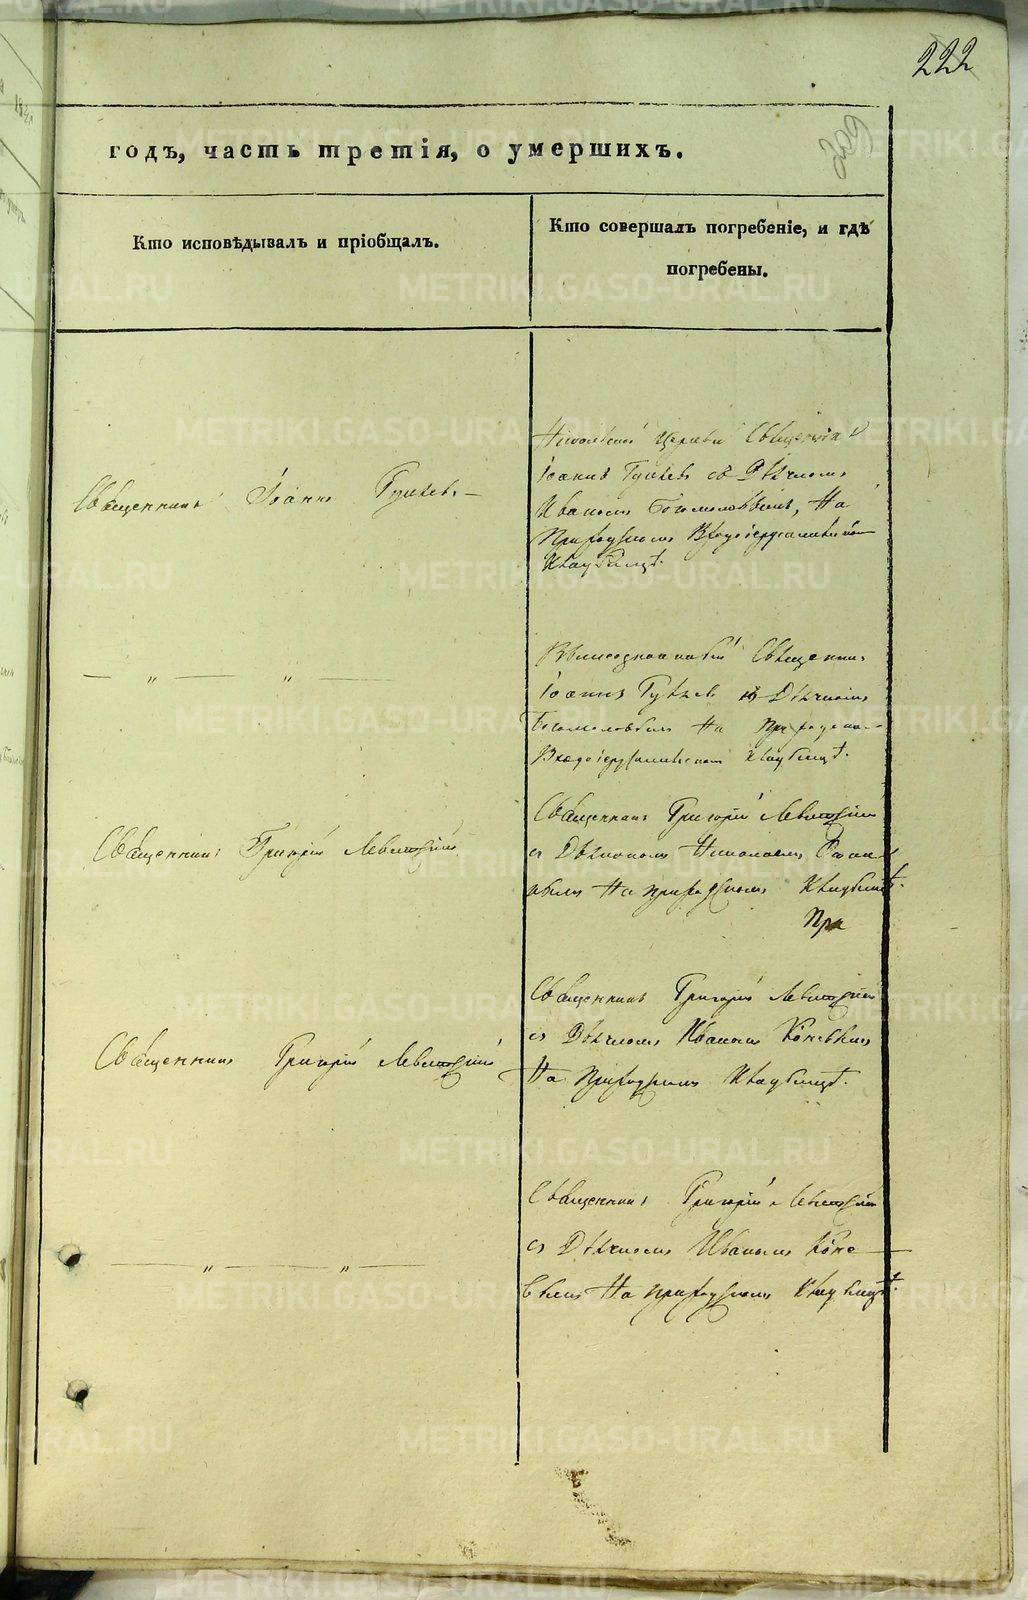 222
209
годъ, часть третія, о умершихъ.
Кто исповѣдывалъ и пріобщалъ.
Кто совершалъ погребеніе, и гдѣ
погребены.
Церкви Священникъ
Священникъ Іоаннъ
Іоаннъ съ Дьячкомъ
Иваномъ Богомоловымъ, На
Приходскомъ Входоіерусалимскомъ
Кладбищѣ.
Вышеозначенный Священникъ
— „ — „ —
Іоаннъ съ Дьячкомъ
Богомоловымъ На Приходскомъ
Входоіерусалимскомъ Кладбищѣ.
Священникъ Григорій Левитскій
Священникъ Григорій Левитскій
съ Дьякономъ Николаемъ
На приходскомъ Кладбищѣ.
При
Священникъ Григорій Левитскій
съ Дьячкомъ Иваномъ Коневымъ
Священникъ Григорій Левитскій
На Приходскомъ Кладбищѣ.
Священникъ Григорій Левитскій
съ Дьячкомъ Иваномъ Коне
— „ — „ —
вымъ На приходскомъ Кладбищѣ.
METRIKI.GASO-URAL.RU